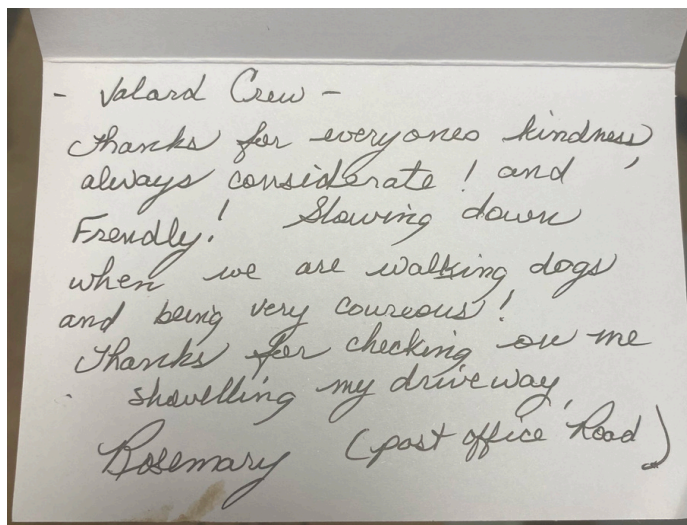 - Valard Crew -
Thanks for everyones kindness,
always considerate! and
Frendly! Slowing down
when we are walking dogs
and being very coureous!
Thanks for checking on me
shovelling my driveway,
Rosemary (post office Road)